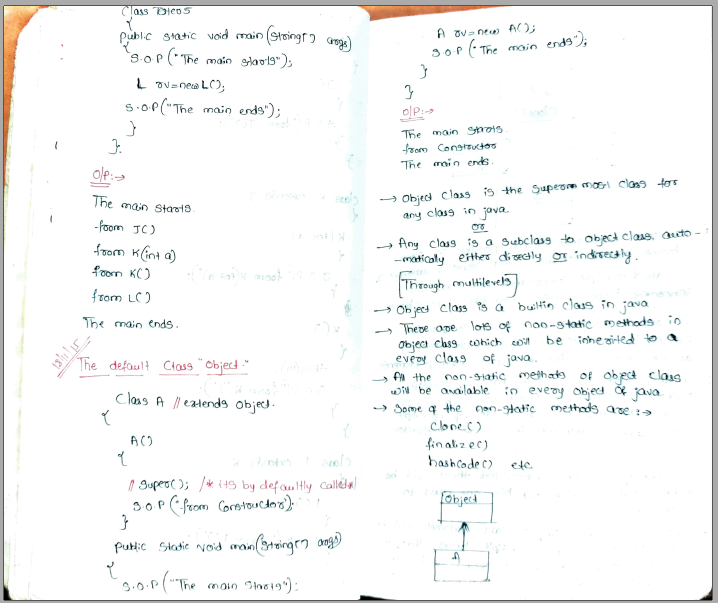 Class
{
public static void main(String[] args)
{
S.O.P("The main starts");
L rv=new L();
S.O.P("The main ends");
}
}
O/P:→
The main starts
from J()
from K(int a)
from K()
from L()
The main ends.
The default Class "Object."
Class A // extends Object.
{
A()
{
// Super(); /* its by defaultly called */
S.O.P("from Constructor);
}
public static void main(String[] args)
{
S.O.P("The main starts");
A rv=new A();
S.O.P("The main ends");
}
}
O/P:→
The main starts
from Constructor
The main ends.
→ Object Class is the most class for
any class in java
or
→ Any class is a subclass to object class, auto-
-matically either directly or indirectly.
[Through multilevels]
→ Object Class is a builtin class in java
→ There are lots of non-static methods in
object class which will be inherited to a
every class of java.
→ All the non-static methods of object class
will be available in every object of java
→ Some of the non-static methods are :→
clone()
finalize()
hashCode() etc.
Object
A